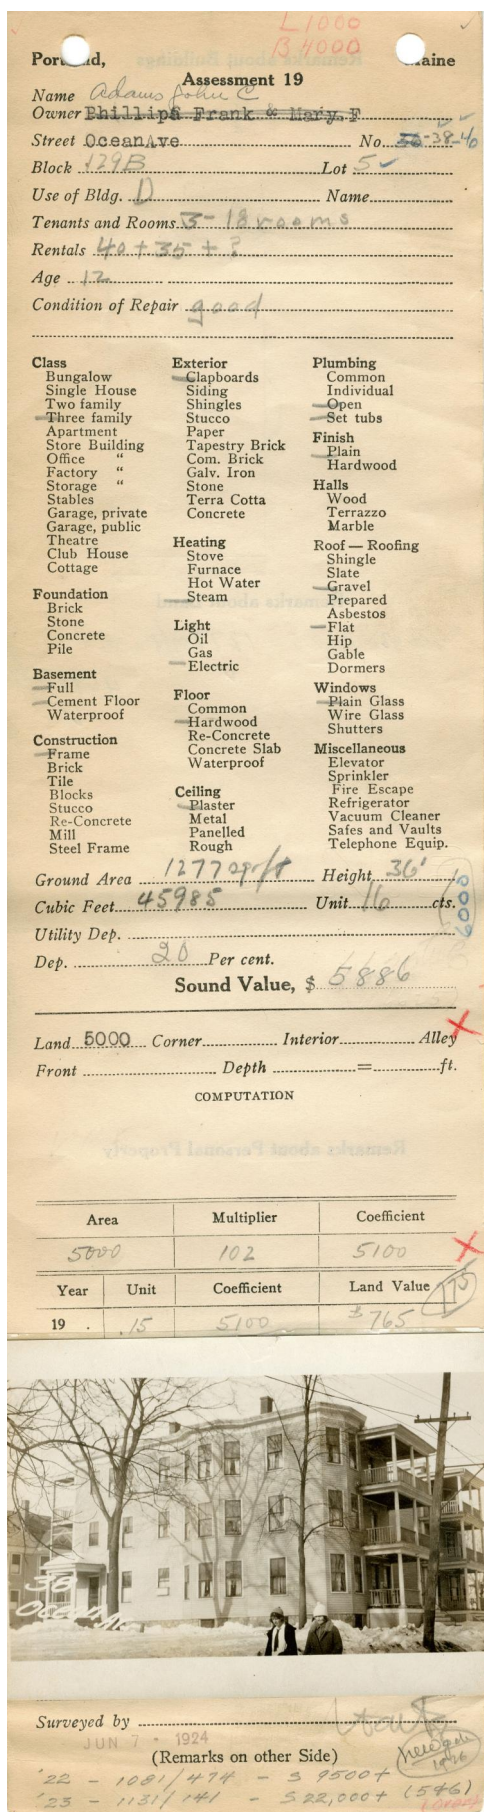 L 1000
B 4000
Portland, Maine
Assessment 19
Name Adams John C
Owner Phillips Frank & Mary F
Street Ocean Ave No. 36-38-40
Block 129B Lot 5
Use of Bldg. D Name
Tenants and Rooms 3-18 rooms
Rentals 40 + 35 + ?
Age 12
Condition of Repair good
Class
Bungalow
Single House
Two family
Three family
Apartment
Store Building
Office "
Factory "
Storage "
Stables
Garage, private
Garage, public
Theatre
Club House
Cottage
Foundation
Brick
Stone
Concrete
Pile
Basement
Full
Cement Floor
Waterproof
Construction
Frame
Brick
Tile
Blocks
Stucco
Re-Concrete
Mill
Steel Frame
Exterior
Clapboards
Siding
Shingles
Stucco
Paper
Tapestry Brick
Com. Brick
Galv. Iron
Stone
Terra Cotta
Concrete
Heating
Stove
Furnace
Hot Water
Steam
Light
Oil
Gas
Electric
Floor
Common
Hardwood
Re-Concrete
Concrete Slab
Waterproof
Ceiling
Plaster
Metal
Panelled
Rough
Plumbing
Common
Individual
Open
Set tubs
Finish
Plain
Hardwood
Halls
Wood
Terrazzo
Marble
Roof — Roofing
Shingle
Slate
Gravel
Prepared
Asbestos
Flat
Hip
Gable
Dormers
Windows
Plain Glass
Wire Glass
Shutters
Miscellaneous
Elevator
Sprinkler
Fire Escape
Refrigerator
Vacuum Cleaner
Safes and Vaults
Telephone Equip.
Ground Area 1277 sq ft Height 36'
Cubic Feet 45985 Unit 16 cts.
6000
Utility Dep.
Dep. 20 Per cent.
Sound Value, $ 5886
Land 5000 Corner Interior Alley
Front Depth = ft.
COMPUTATION
Area Multiplier Coefficient
5000 102 5100
Year Unit Coefficient Land Value 175
19 . .15 5100 $765
38
Ocean Av
Surveyed by
JUN 7 - 1924
(Remarks on other Side)
'22 - 1081/474 - $ 9500+
'23 - 1131/141 - $ 22,000+ (546)